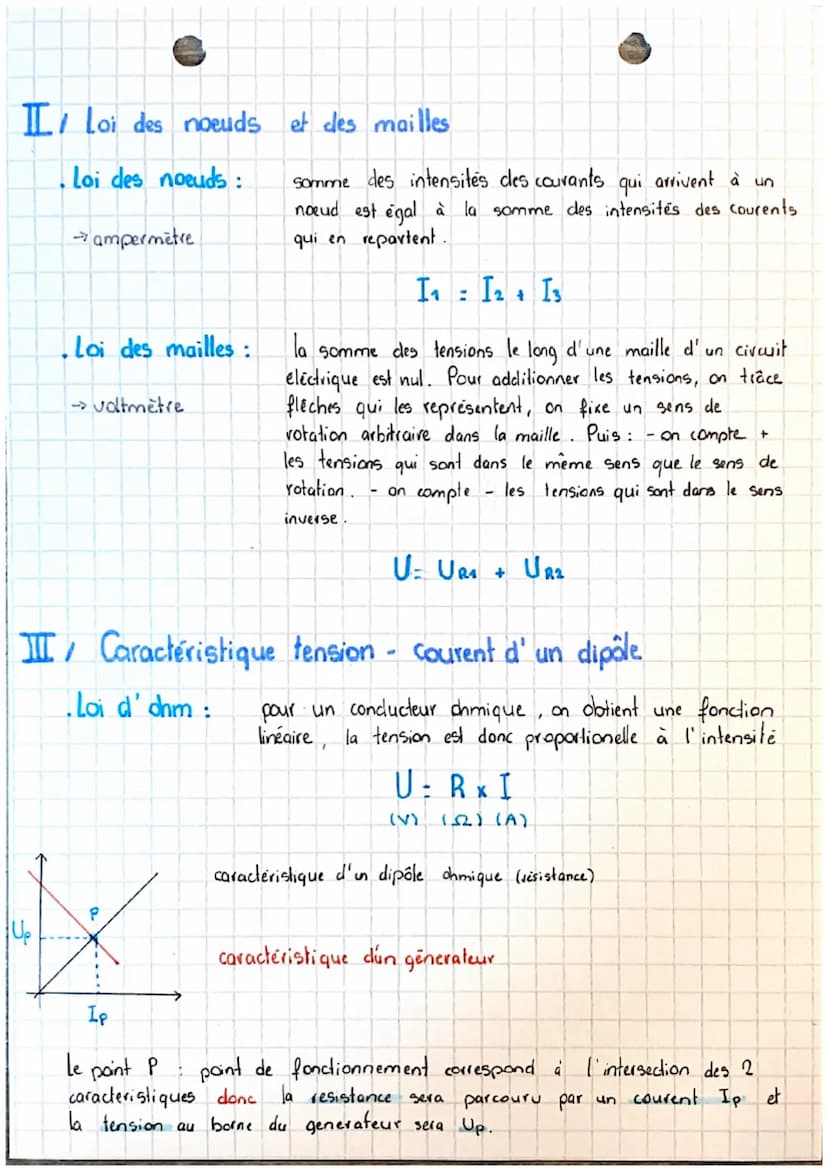 II/ Loi des noeuds et des mailles
. Loi des noeuds : somme des intensités des courants qui arrivent à un
noeud est égal à la somme des intensités des courents
→ ampermètre qui en repartent.
I1 = I2 + I3
. Loi des mailles : la somme des tensions le long d'une maille d'un circuit
éléctrique est nul. Pour additionner les tensions, on trâce
→ voltmètre flèches qui les représentent, on fixe un sens de
rotation arbitraire dans la maille. Puis : - on compte +
les tensions qui sont dans le même sens que le sens de
rotation. - on compte - les tensions qui sont dans le sens
inverse.
U = UR1 + UR2
III/ Caractéristique tension - courent d'un dipôle
. Loi d'ohm : pour un conducteur ohmique, on obtient une fonction
linéaire, la tension est donc proportionelle à l'intensité
U = R x I
(V) (Ω) (A)
caractéristique d'un dipôle ohmique (résistance)
P
Up
caractéristique d'un génerateur
Ip
Le point P : point de fonctionnement correspond à l'intersection des 2
caracteristiques donc la resistance sera parcouru par un courent Ip et
la tension au borne du generateur sera Up.